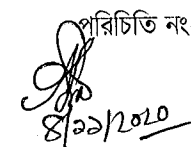 পরিচিতি নং
৪/১১/২০২০